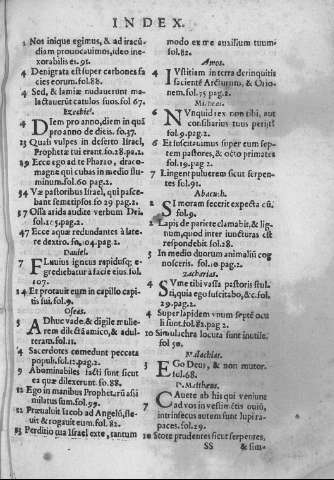 INDEX.
1 Nos iniquè egimus, & ad iracū
diam prouocauimus, ideo ine-
xorabilis es. 91.
4 Denigrata est super carbones fa
cies eorum. fol. 88.
4 Sed, & lamiæ nudauerunt ma-
lactauerūt catulos suos. fol. 67.
Ezechiel.
4 Diem pro anno, diem in quā
pro anno de ditis. fo. 37.
23 Quasi vulpes in deserto Israel,
Prophetæ tui erant. fo. 28. pa. 2.
29 Ecce ego ad te Pharao, draco-
magne qui cubas in medio flu-
minum. fol. 60 pag. 2.
34 Væ pastoribus Israel, qui pasce-
bant semetipsos fo 29 pag. 2.
37 Ossa arida audite verbum Dei.
pag. 2.
47 Ecce aquæ redundantes à late-
re dextro. fo. 104. pag. 2.
Daniel.
7 Fluuius igneus rapidusq; e-
grediebatur à facie eius. fol.
107.
14 Et protauit eum in capillo capi-
tis sui. fol. 9.
Oseas.
3 Adhuc vade, & dilige mulie-
rem dilectā amico, & adul-
teram. fol. 11.
4 Sacerdotes comedunt peccata
populi. fol. 12. pag. 2.
9 Abominabiles facti sunt sicut
ea quæ dilexerunt. fo. 88.
12 Ego in manibus Prophet. rū assi
milatus sum. fol. 99.
12 Præualuit Iacob ad Angelū, fle-
uit & rogauit eum. fol. 82.
13 Perditio tua Israel ex te, tantum
modo ex me auxilium tuum.
fol. 82.
Amos.
4 Iustitiam in terra derinquitis
facientē Arcturum, & Orio-
nem. fol. 75 pag. 2.
Micheas.
6 Nunquid rex non tibi, aut
consiliarius tuus perijt?
fol. 9. pag. 2.
6 Et suscitauimus super eum sep-
tem pastores, & octo primates
fol. 19. pag. 2.
7 Lingent puluerem sicut serpen-
tes fol. 91.
Abacuch.
2 Si moram fecerit expecta eū,
fol. 9.
2 Lapis de pariete clamabit, & lig-
num, quod inter iuncturas est
respondebit fol. 28.
3 In medio duorum animaliū cog
nosceris. fol. 10. pag. 2.
Zacharias.
4 Sume tibi vasa pastoris stul-
ti, quia ego suscitabo, &c. fol.
29. pag. 2.
4 Super lapidem vnum septē ocu
li sunt. fol. 82. pag 2.
10 Simulachra locuta sunt inutile.
fol 50.
Malachias.
3 Ego Deus, & non mutor.
fol. 68.
D. Mattheus.
7 Cauete ab his qui veniunt
ad vos in vestimētis ouiū,
intrinsecus autem sunt lupi ra-
paces. fol. 29.
10 Stote prudentes sicut serpentes,
SS & sim-